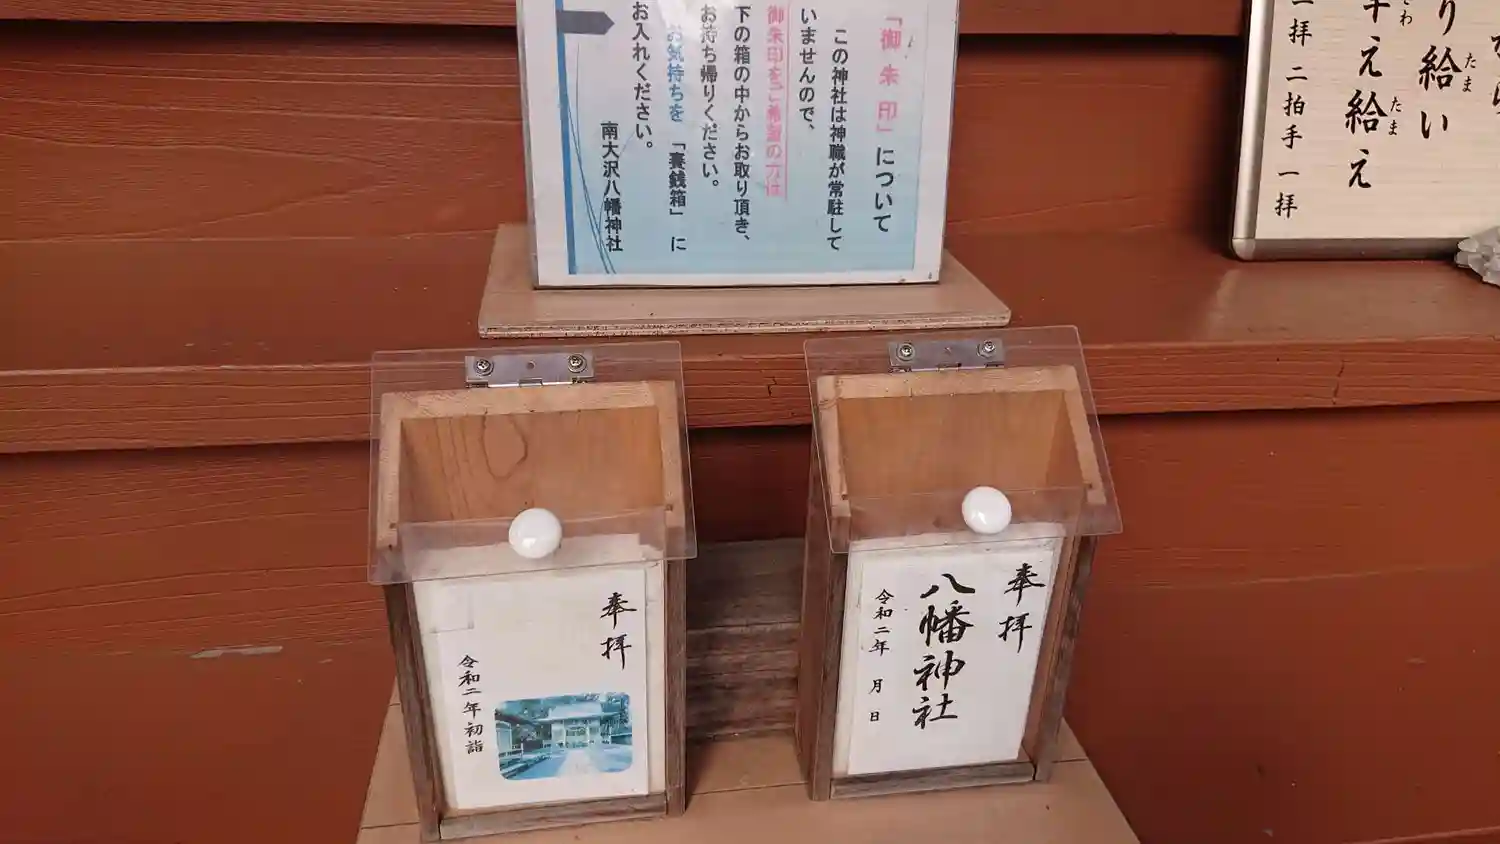 「御朱印」について
この神社は神職が常駐して
いませんので、
御朱印をご希望の方は
下の箱の中からお取り頂き、
お持ち帰りください。
お気持ちを「賽銭箱」に
お入れください。
南大沢八幡神社
り給い
え給え
たま
たま
二拝 二拍手 一拝
奉拝
令和二年初詣
奉拝
八幡神社
令和二年 月 日